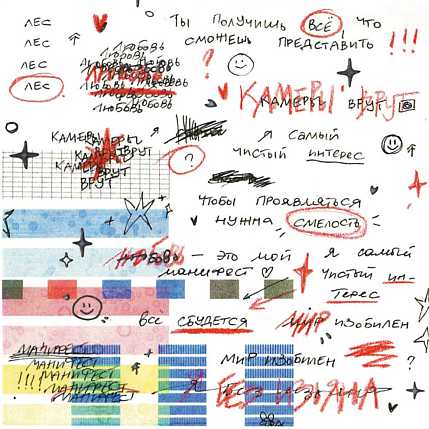 ЛЕС
ЛЕС
ЛЕС
ЛЕС
ТЫ ПОЛУЧИШЬ ВСЁ, ЧТО
СМОЖЕШЬ ПРЕДСТАВИТЬ !!!
ЛЮБОВЬ
ЛЮБОВЬ ЛЮБОВЬ
ЛЮБОВЬ
ЛЮБОВЬ ЛЮБОВЬ
ЛЮБОВЬ
?
КАМЕРЫ ВРУТ
КАМЕРЫ ВРУТ
КАМЕРЫ
КАМЕРЫ
КАМЕРЫ ВРУТ
ВРУТ
ВРУТ
?
Я САМЫЙ
ЧИСТЫЙ ИНТЕРЕС
ЧТОБЫ ПРОЯВЛЯТЬСЯ
НУЖНА СМЕЛОСТЬ
ЛЮБОВЬ — ЭТО МОЙ
МАНИФЕСТ
Я САМЫЙ
ЧИСТЫЙ ИН-
ТЕРЕС
ВСЁ СБУДЕТСЯ
МИР ИЗОБИЛЕН
МАНИФЕСТ
МАНИФЕСТ
!!!! МАНИФЕСТ
МАНИФЕСТ
МАНИФЕСТ
МИР ИЗОБИЛЕН ?
Я БЕЗ ИЗЪЯНА